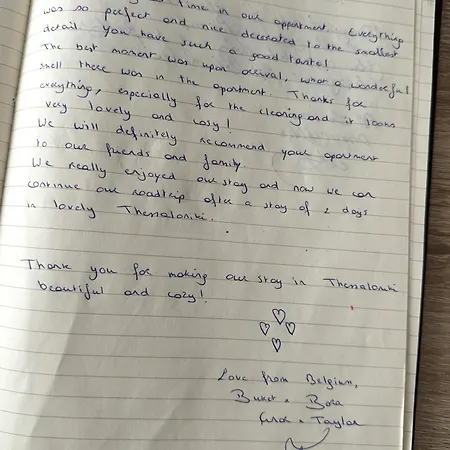 time in our appartment. Everything
was so perfect and nice decorated to the smallest
detail. You have such a good taste!
The best moment was upon arrival, what a wonderful
smell there was in the apartment. Thanks for
everything, especially for the cleaning and it looks
very lovely and cosy!
We will definitely recommend your apartment
to our friends and family.
We really enjoyed our stay and now we can
continue our roadtrip after a stay of 2 days
in lovely Thessaloniki.
Thank you for making our stay in Thessaloniki
beautiful and cozy!
Love from Belgium,
Buket & Bora
& Taylan